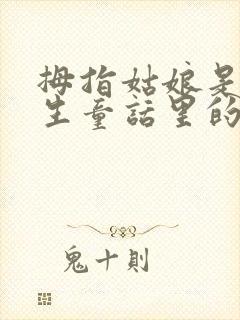 拇指姑娘是
生童話里的
鬼十則